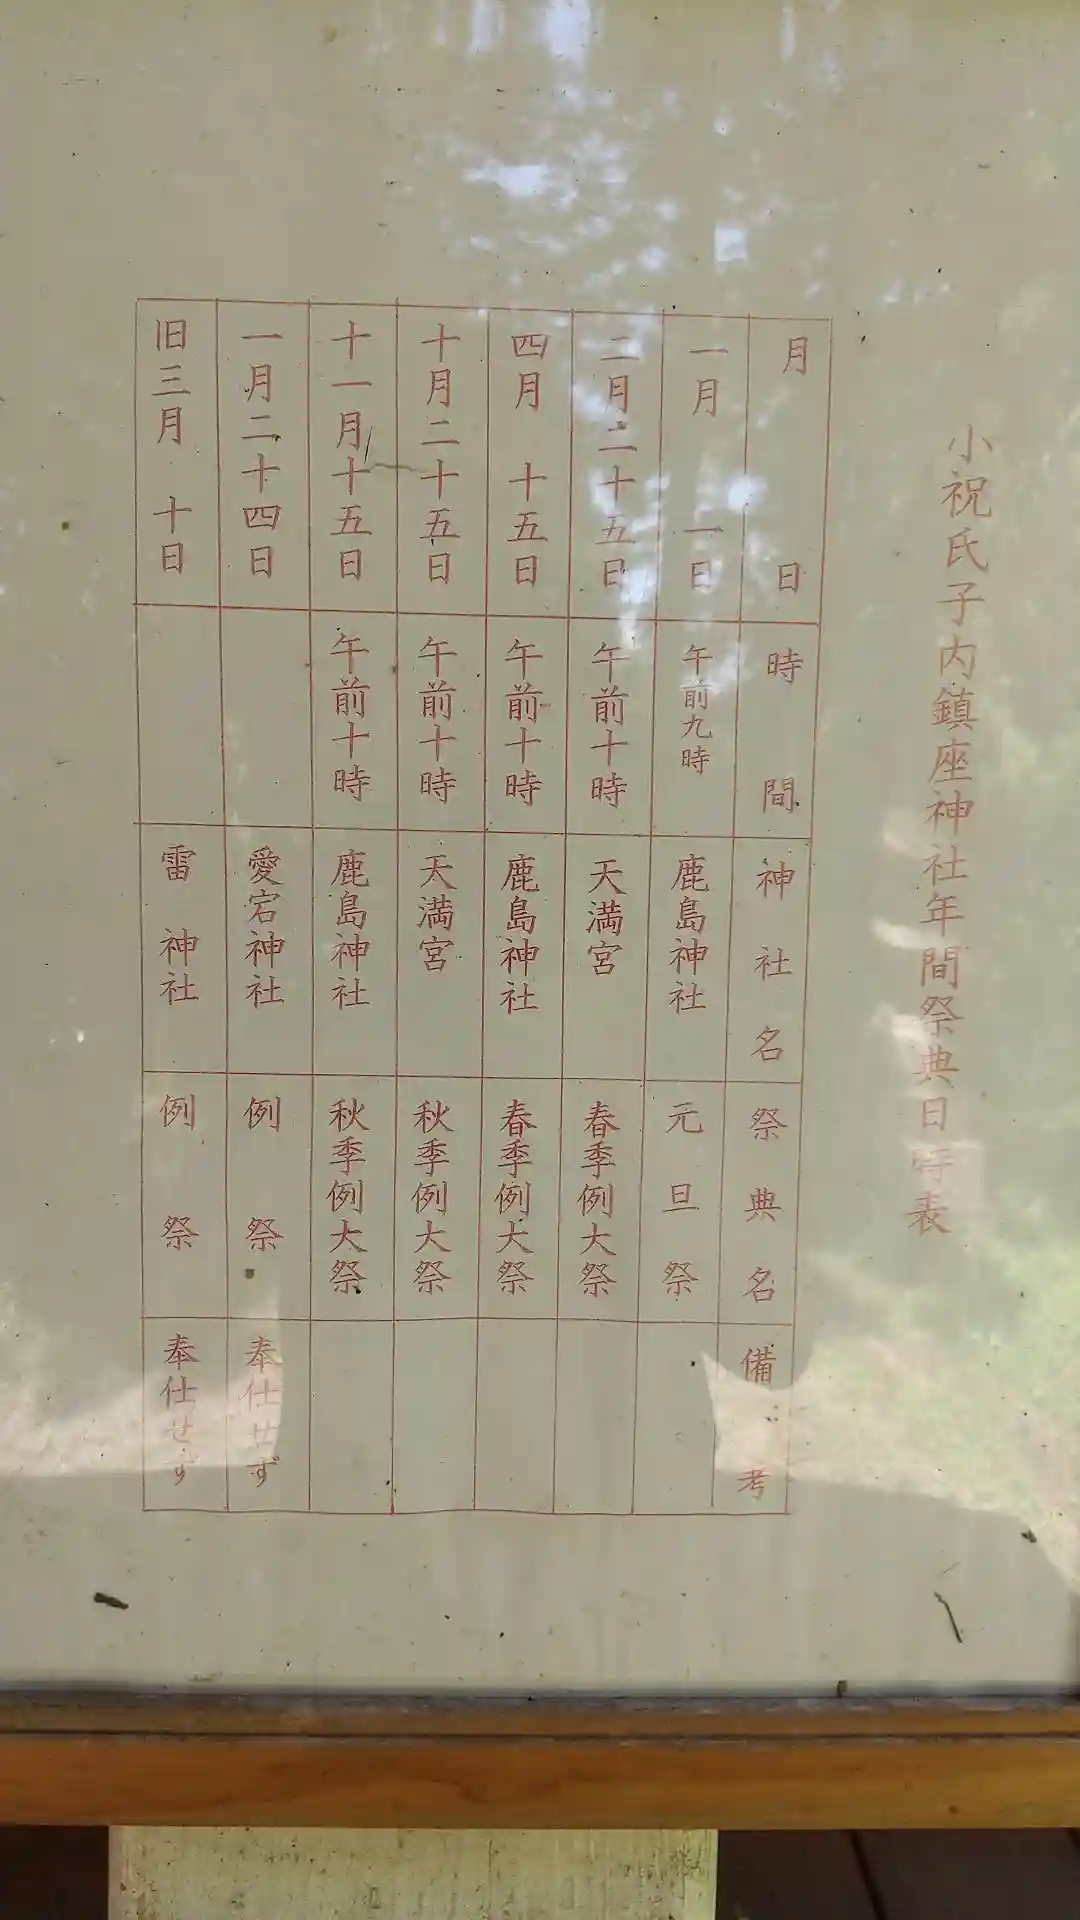 小祝氏子内鎮座神社年間祭典日時表
月日 時間 神社名 祭典名 備考
一月一日 午前九時 鹿島神社 元旦祭
二月二十五日 午前十時 天満宮 春季例大祭
四月十五日 午前十時 鹿島神社 春季例大祭
十月二十五日 午前十時 天満宮 秋季例大祭
十一月十五日 午前十時 鹿島神社 秋季例大祭
一月二十四日 愛宕神社 例祭 奉仕せず
旧三月十日 雷神社 例祭 奉仕せず